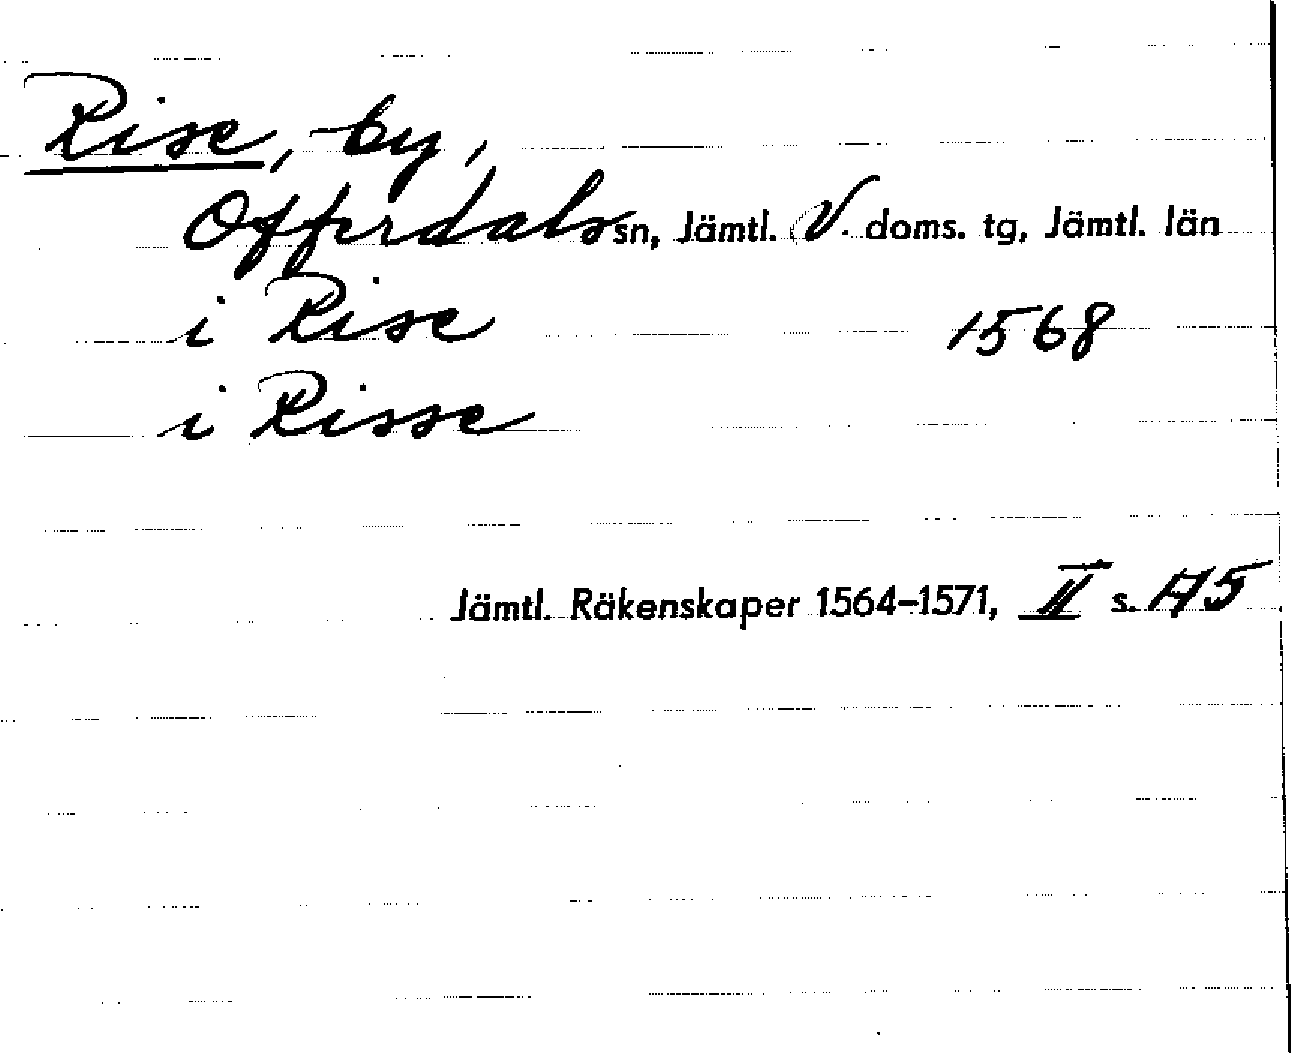 Rise, by,
Offerdals sn, Jämtl. V. doms. tg, Jämtl. län
i Rise 1568
i Risse
Jämtl. Räkenskaper 1564-1571, II s. 175